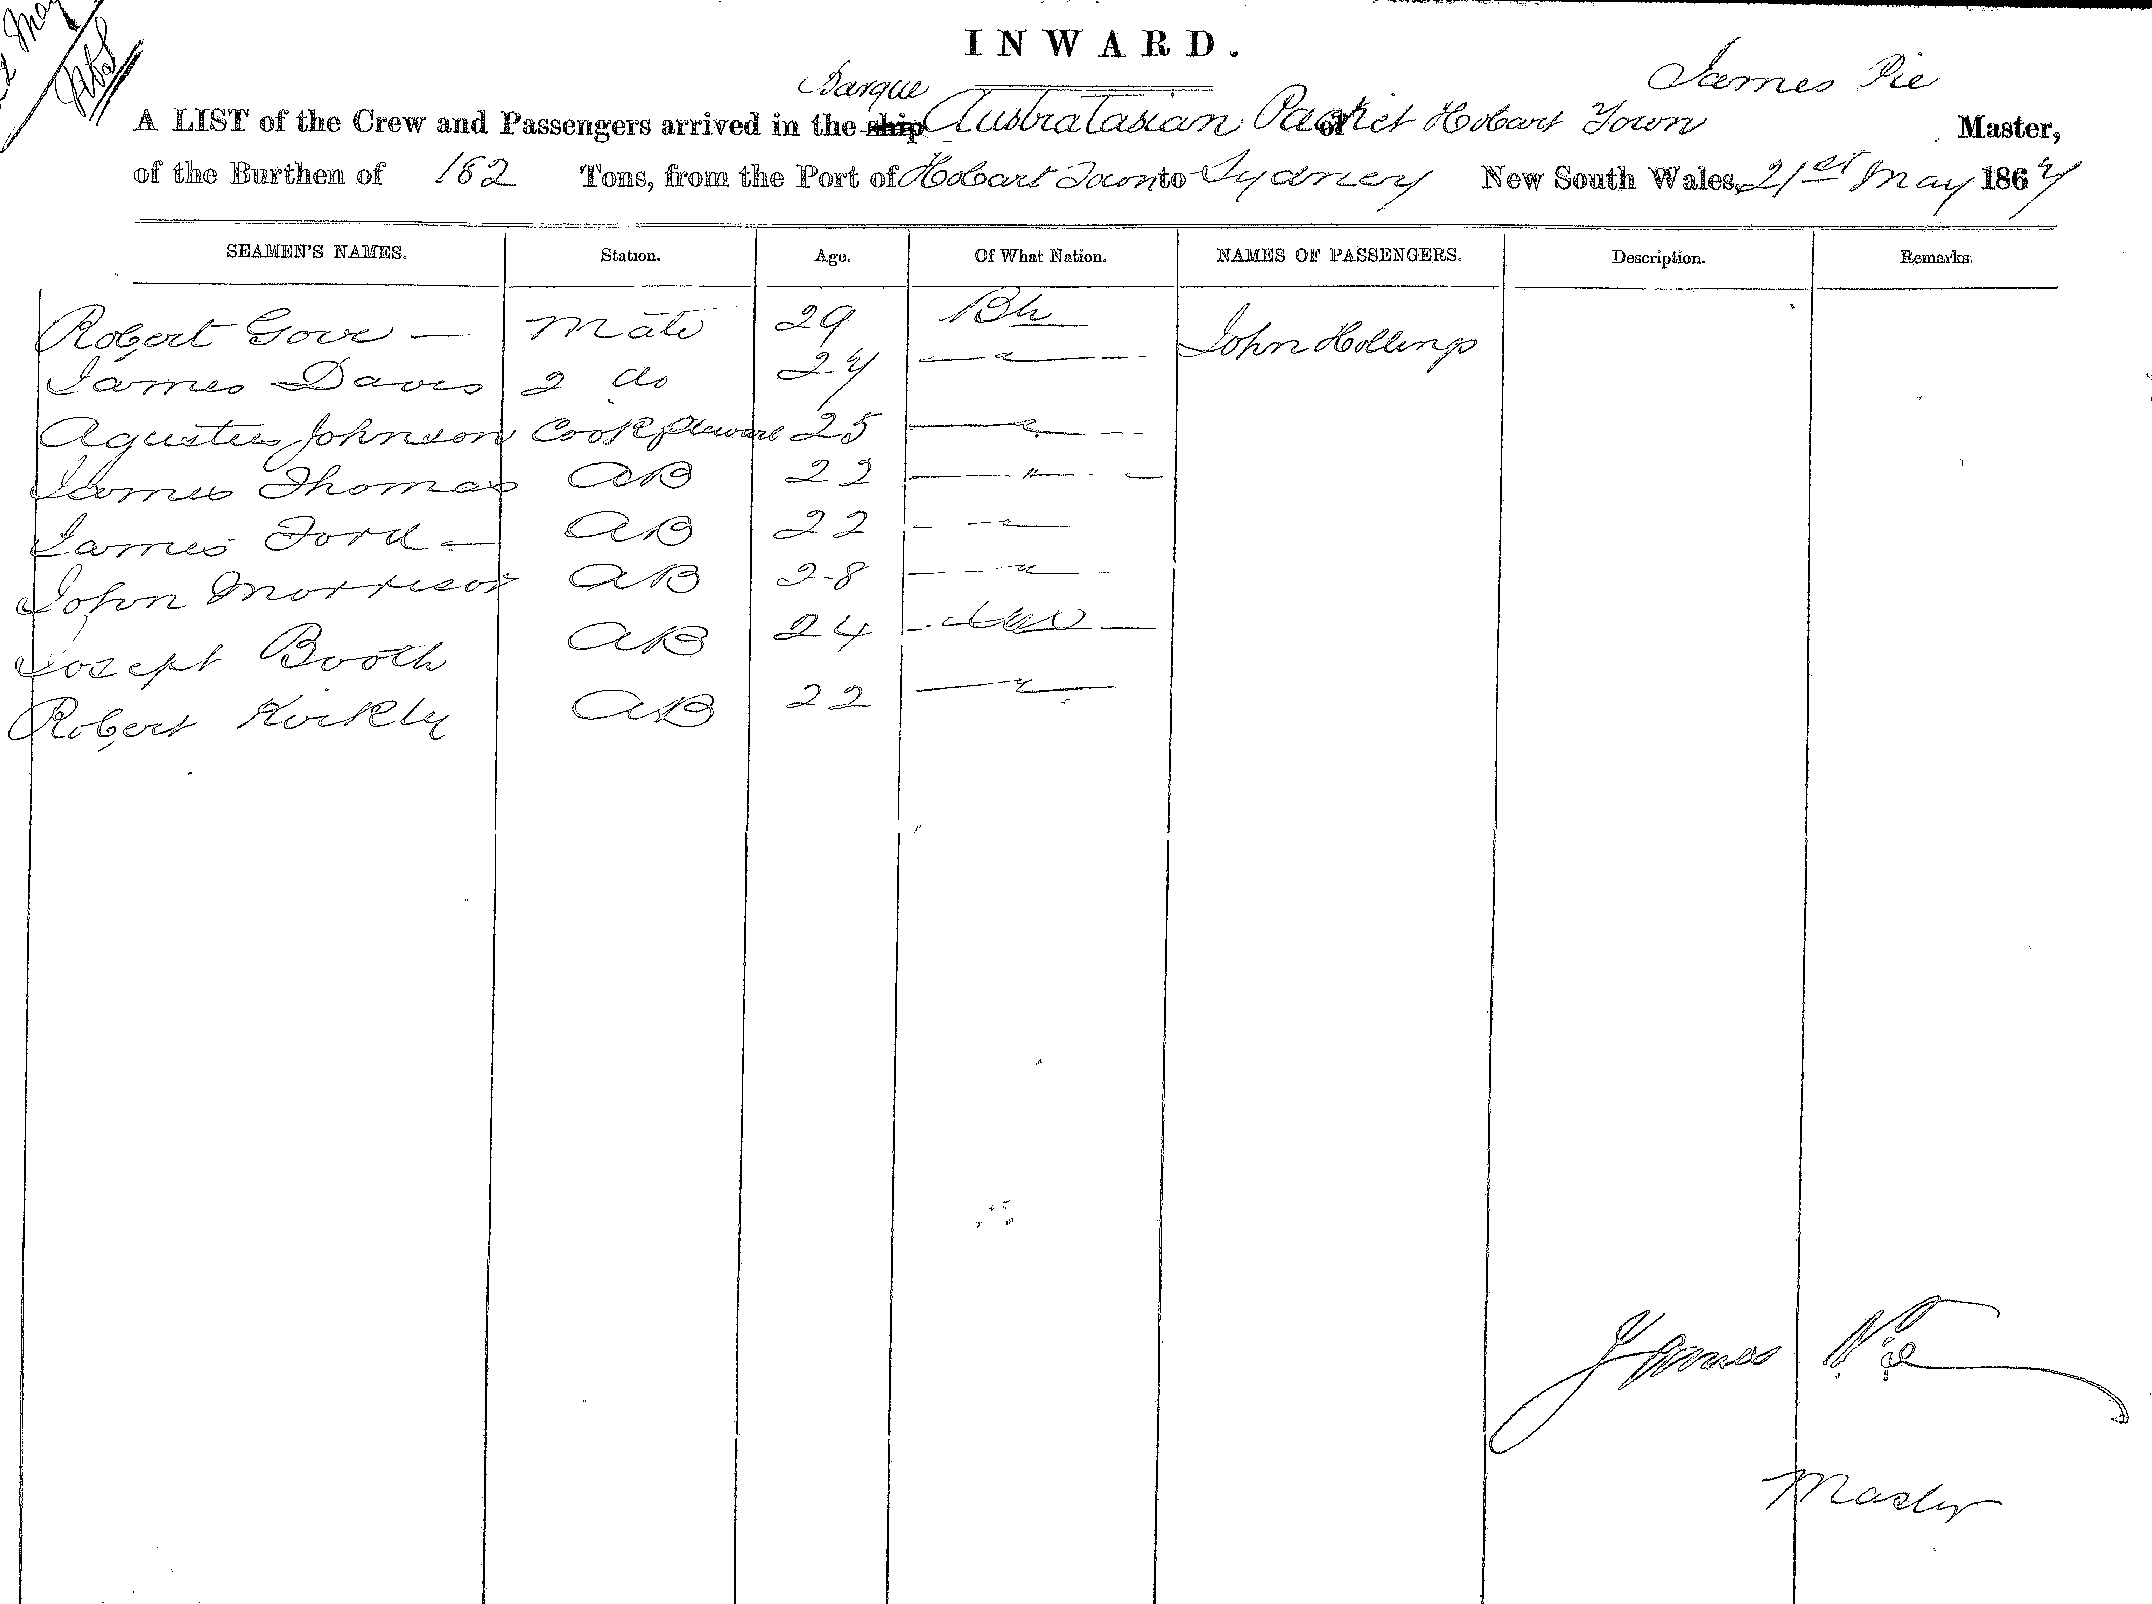 INWARD.
Barque James Pie
A LIST of the Crew and Passengers arrived in the ship Australasian Packet of Hobart Town Master,
of the Burthen of 182 Tons, from the Port of Hobart Town to Sydney New South Wales, 21st May 1867
SEAMEN'S NAMES. Station. Age. Of What Nation. NAMES OF PASSENGERS. Description. Remarks.
Robert Gove — Mate 29 Bh John Hollings
James Davis 2 do 27 — " —
Agustus Johnson Cook & Steward 25 — " —
James Thomas AB 22 — " —
James Ford — AB 22 — " —
John Morrison AB 28 — " —
Joseph Booth AB 24
Robert Kirkby AB 22 — " —
James Pie
Master